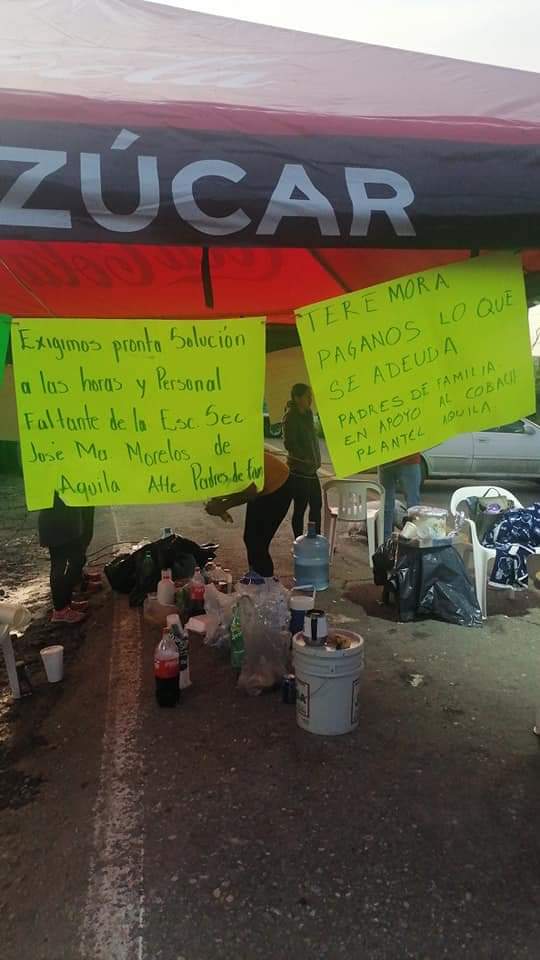 ZÚCAR
Coca-Cola
Exigimos pronta Solución
a las horas y Personal
Faltante de la Esc. Sec
José Ma. Morelos de
Aquila Atte Padres de Fam
TERE MORA
PAGANOS LO QUE
SE ADEUDA
PADRES DE FAMILIA.
EN APOYO AL COBACH
PLANTEL AQUILA.